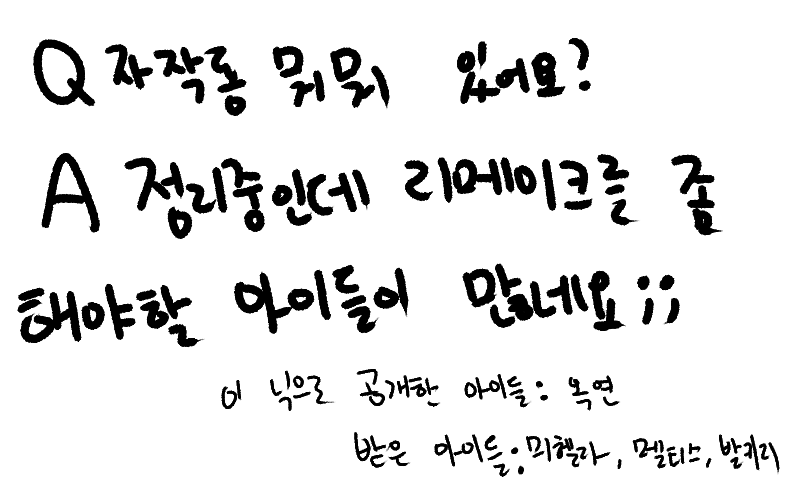 Q 자작롱 뭐뭐 있어요?
A 정리중인데 리메이크를 좀
해야할 아이들이 많네요;;
이 닉으로 공개한 아이들: 옥연
받은 아이들: 미첼라, 멜티스, 발키리